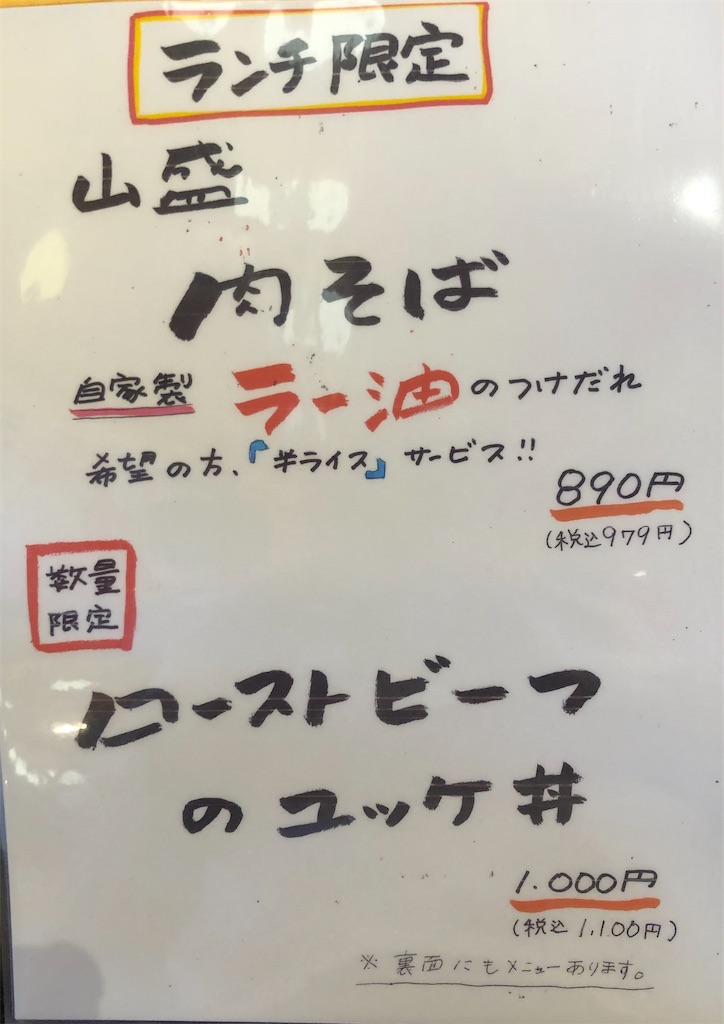 ランチ限定
山盛
肉そば
自家製 ラー油のつけだれ
希望の方、『半ライス』サービス!!
890円
(税込979円)
数量
限定
ローストビーフ
のユッケ丼
1.000円
(税込1.100円)
※裏面にもメニューあります。